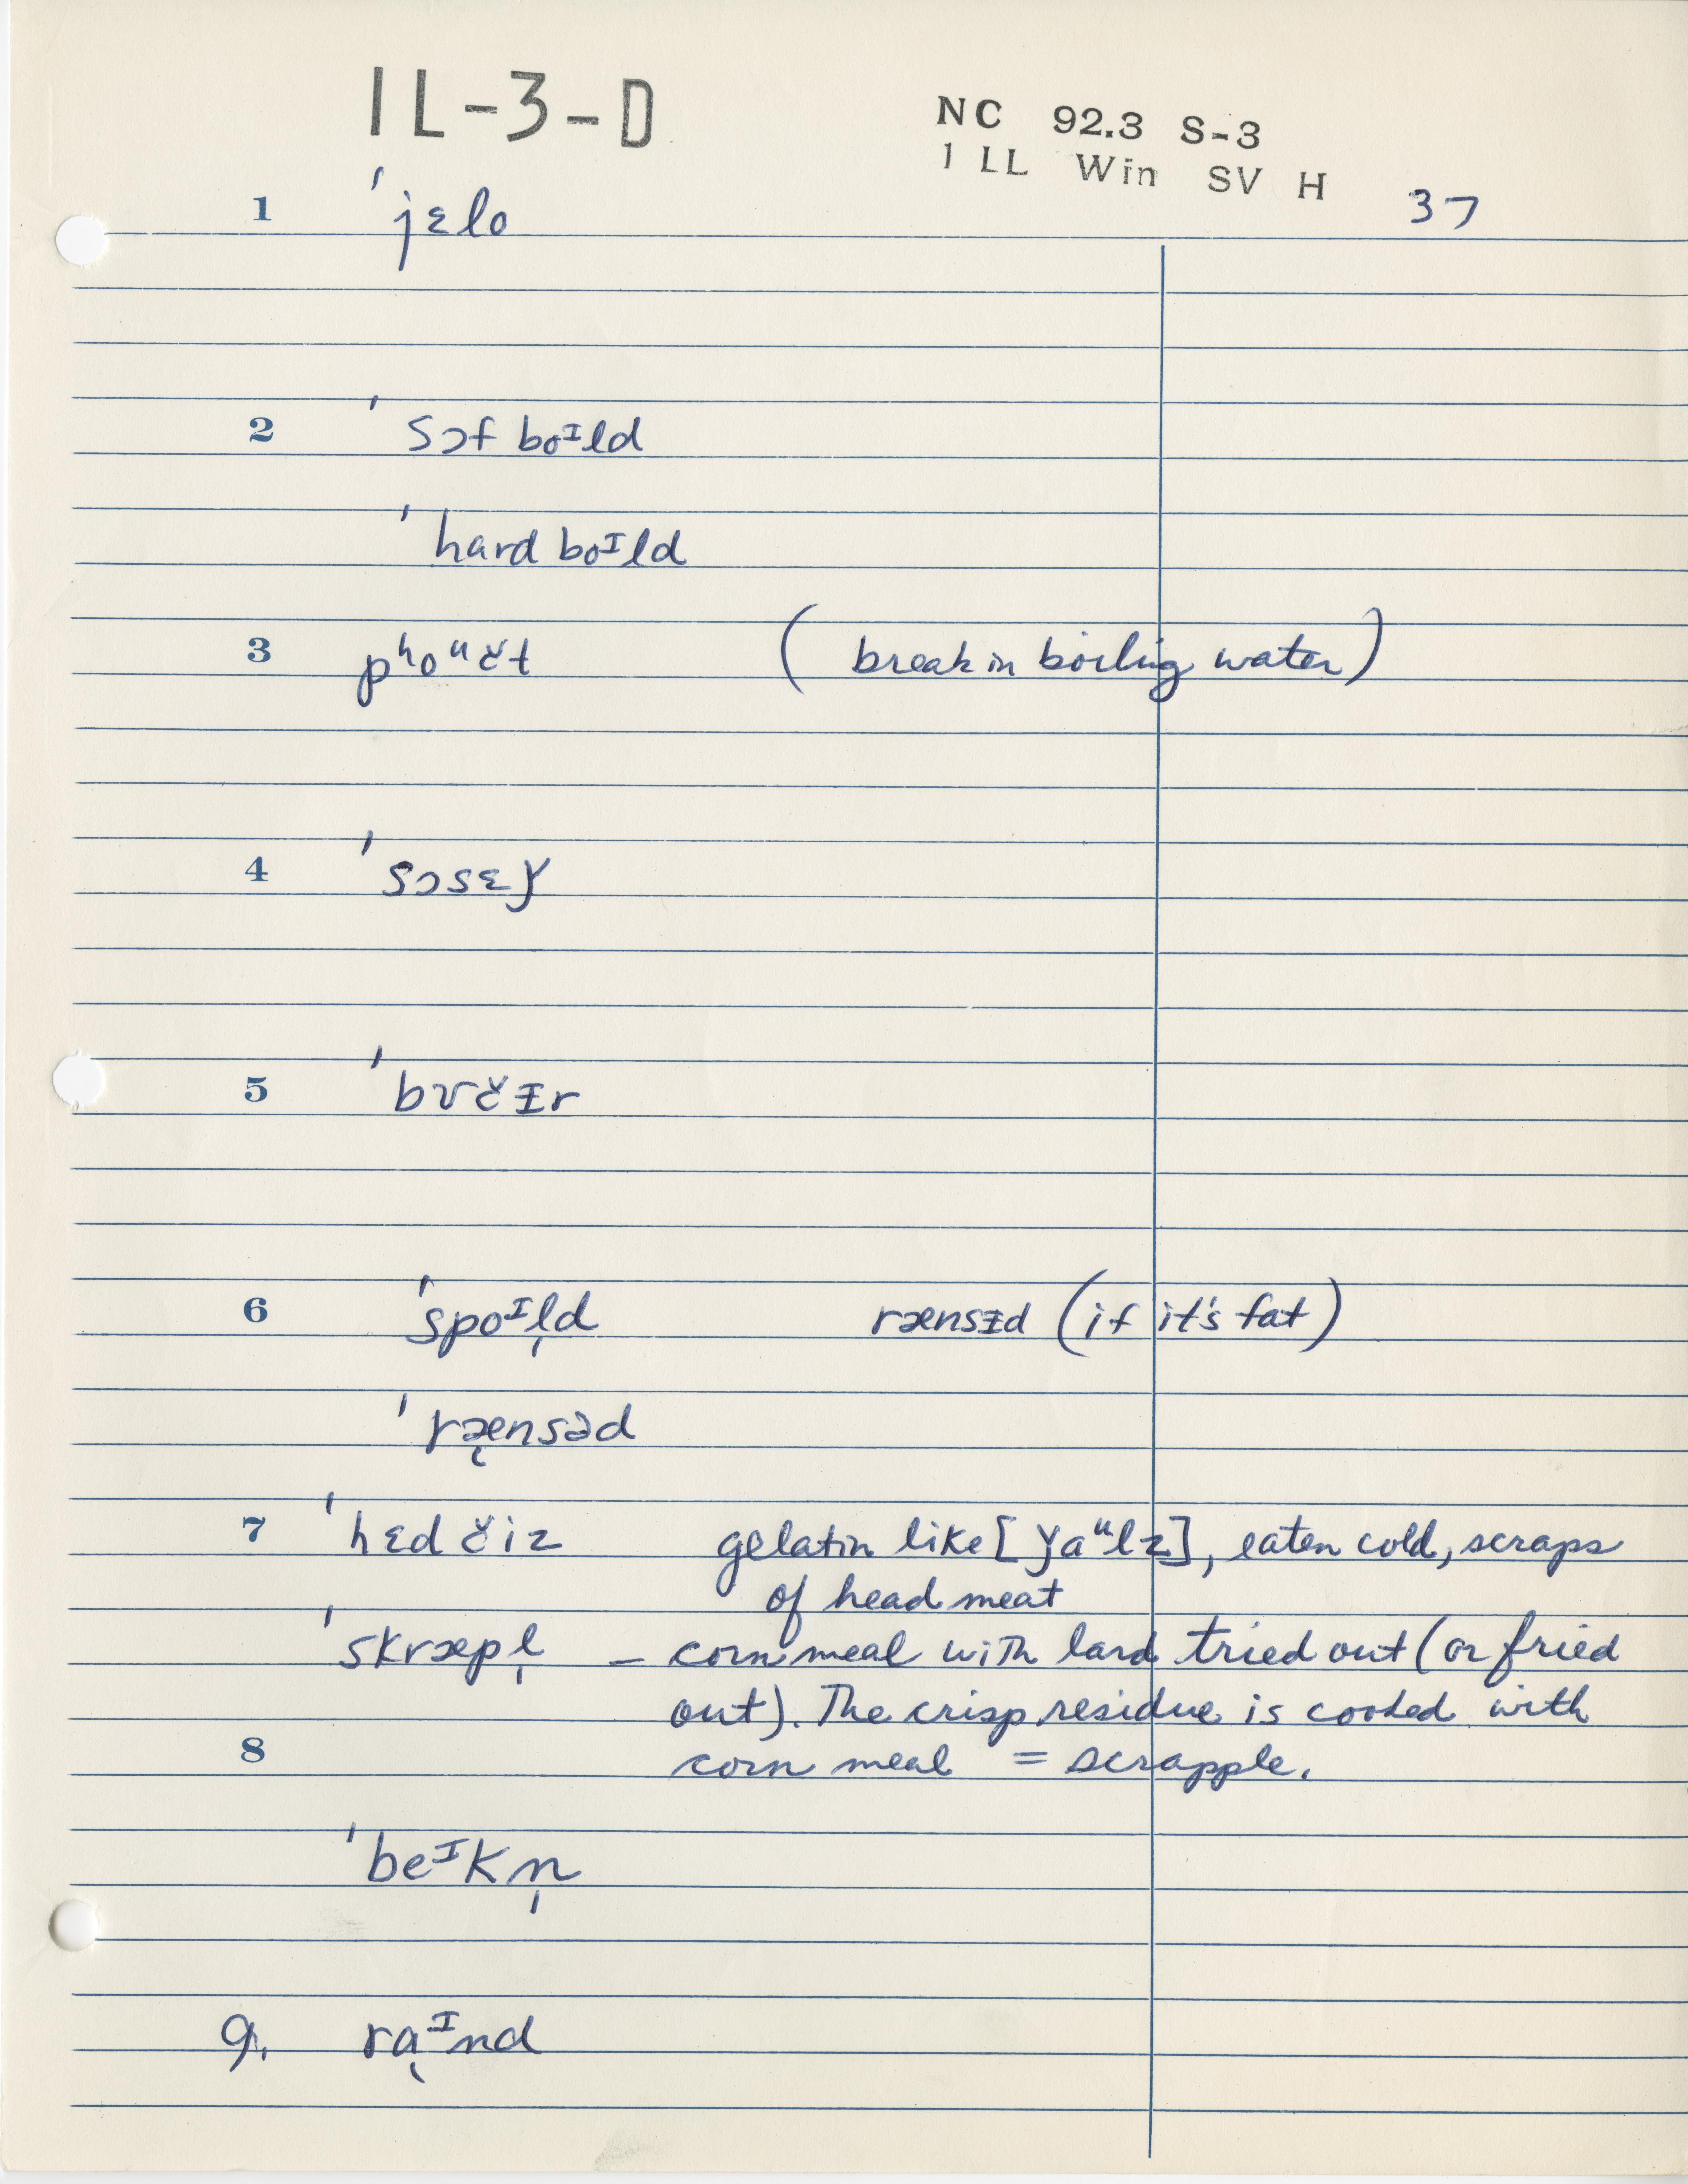 1L-3-D
NC 92.3 S-3
1 LL Win SV H 37
1 ˈjɛlo
2 ˈsɔf boᶦld
ˈhard boᶦld
3 pʰoᵘčt (break in boiling water)
4 ˈsɔsɛǰ
5 ˈbʊčɪ̵r
6 ˈspoᶦl̩d rænsɪ̵d (if it's fat)
ˈræ̨nsəd
7 ˈhɛd čiz gelatin like [ǰaᵘlz], eaten cold, scraps
of head meat
ˈskræpl̩ – corn meal with lard tried out (or fried
out). The crisp residue is cooked with
8 corn meal = scrapple.
ˈbeᶦkn̩
9. rą́ᶦnd